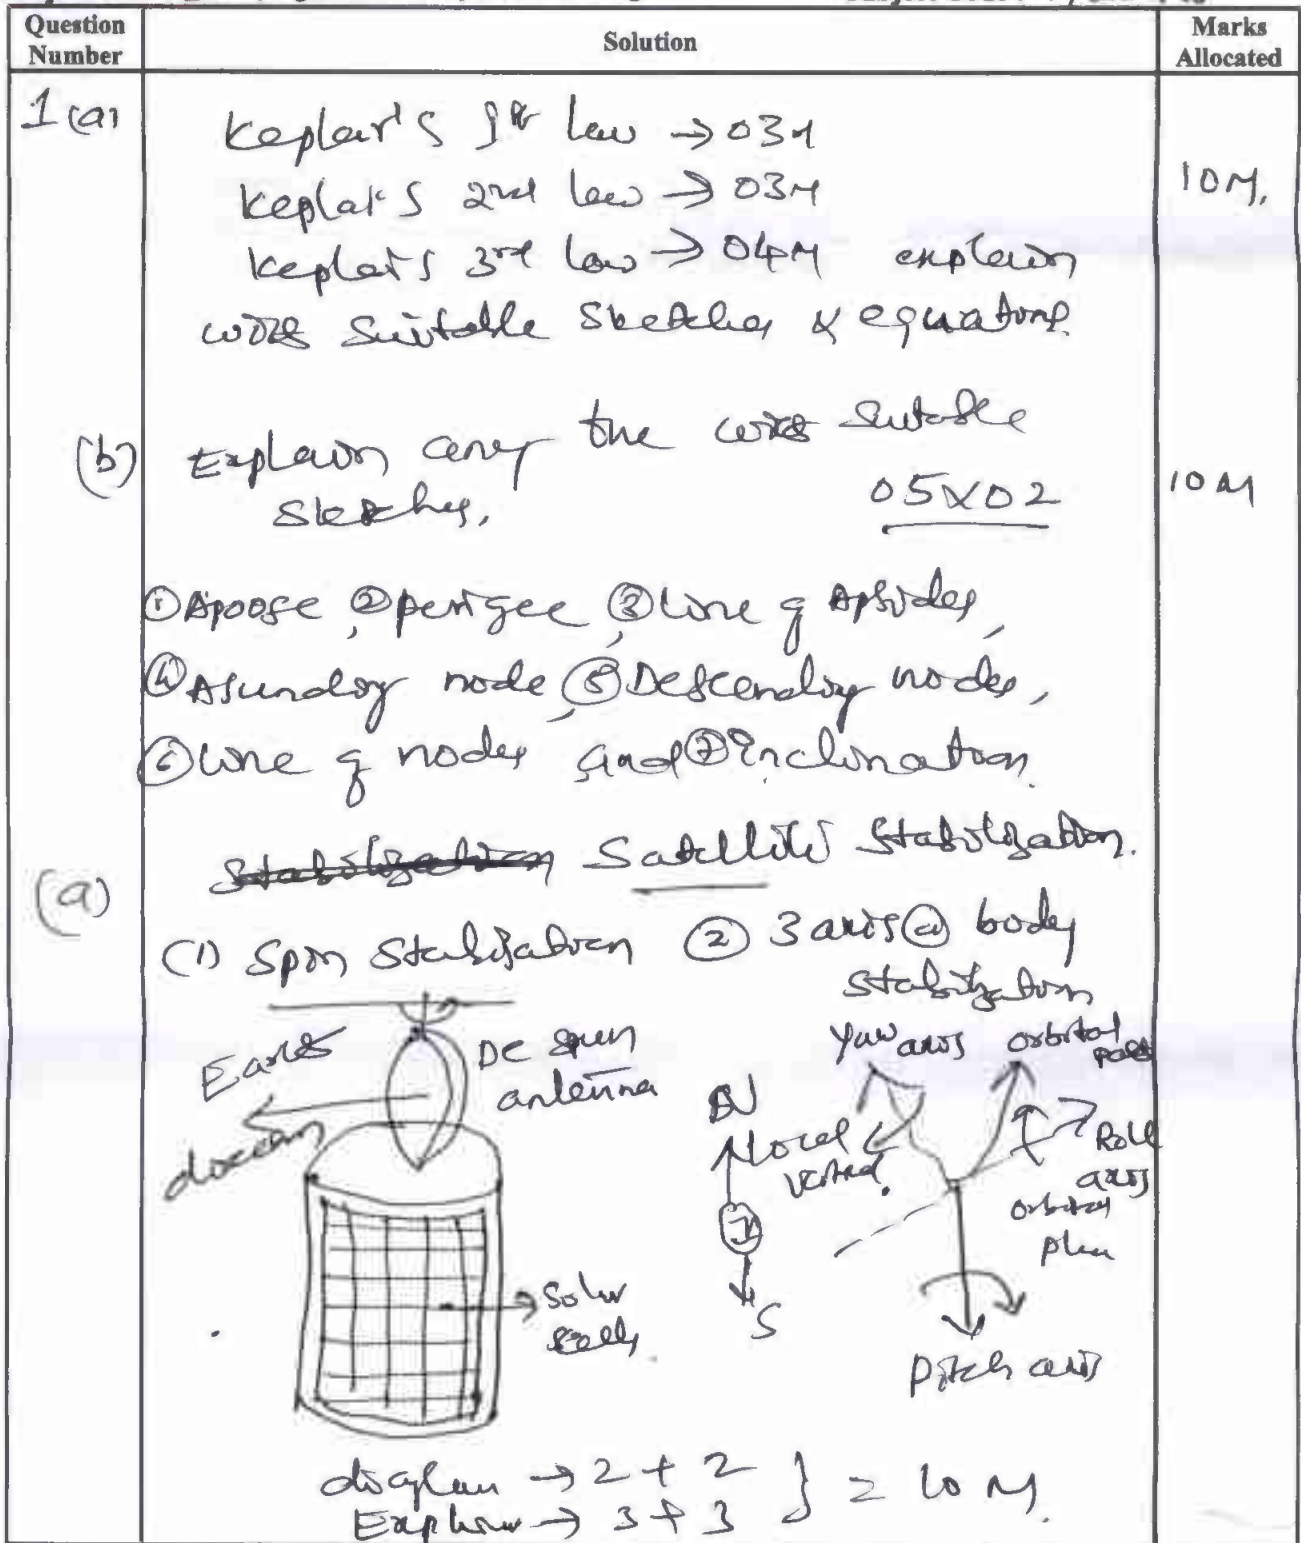 Question Number
Solution
Marks Allocated
1(a)
Keplar's 1st law → 03M
Keplar's 2nd law → 03M
10M.
Keplar's 3rd law → 04M explain
with suitable sketches & equations.
(b)
Explain any the with suitable
sketches.
05X02
10M
① Apogee, ② perigee ③ Line of Apsides,
④ Ascending node, ⑤ Descending nodes,
⑥ Line of nodes and ⑦ Inclination.
(a)
Satellite Stabilization.
(1) Spin Stabilization ② 3 axis @ body
stabilization
Earth
De spun
antenna
Yaw axis
orbital
N
local
vertical.
Roll
axis
orbital
plan
Solar
cells
S
Pitch axis
diagram → 2 + 2 } = 10 M.
Explain → 3 + 3